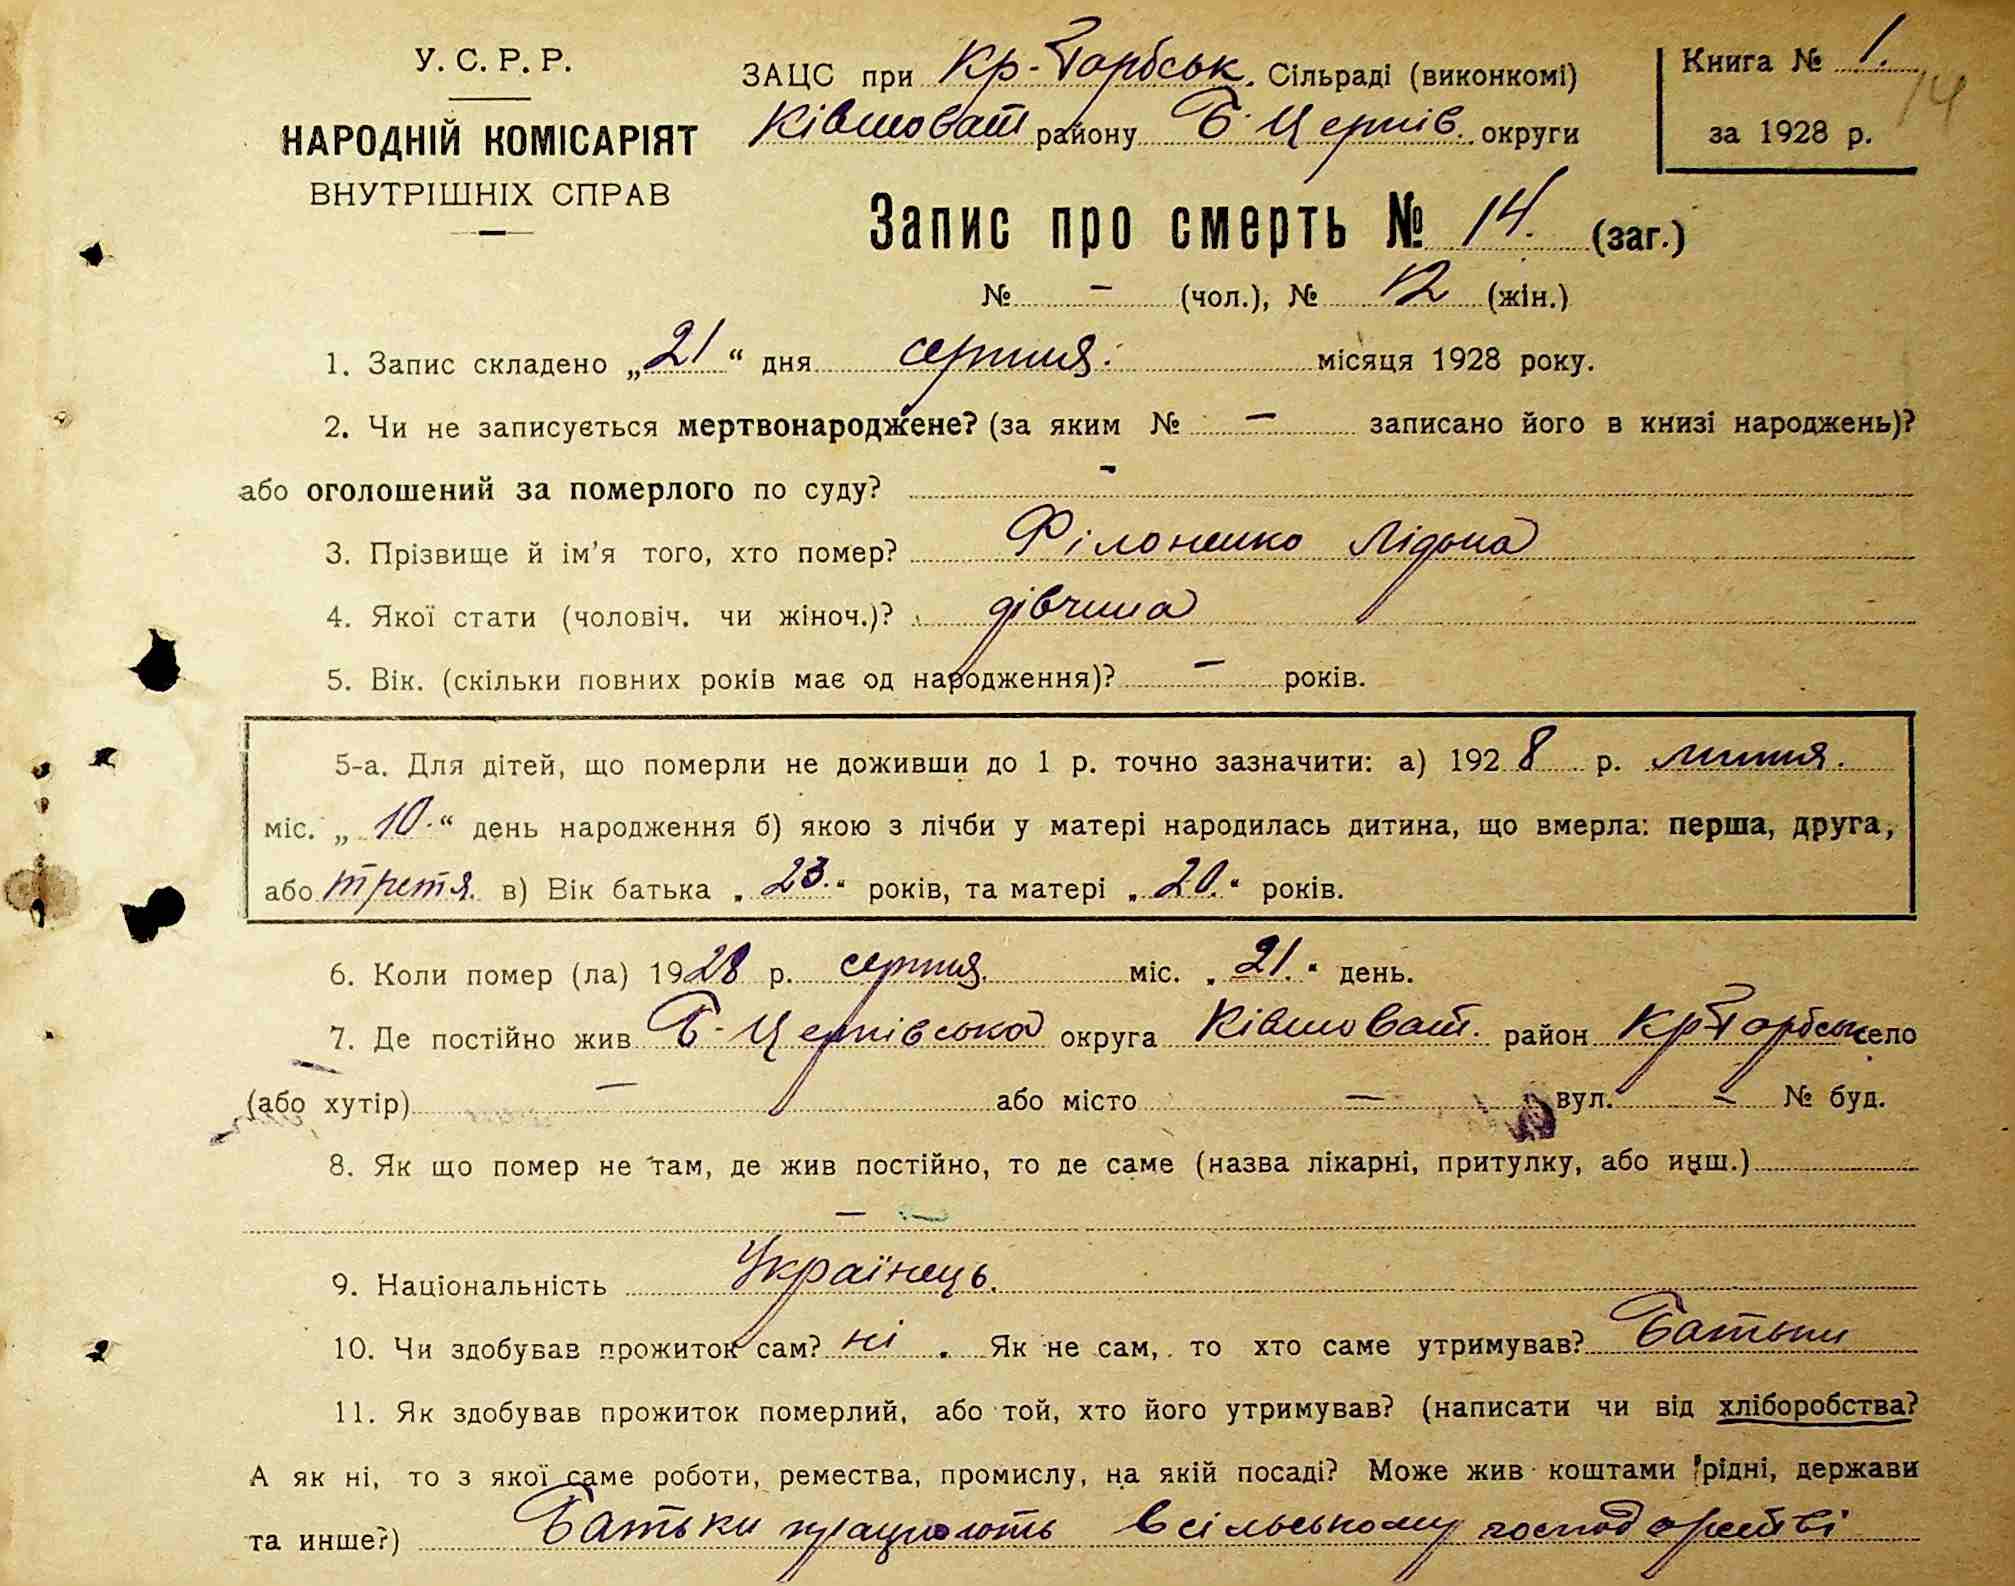 У. С. Р. Р.
НАРОДНІЙ КОМІСАРІЯТ
ВНУТРІШНІХ СПРАВ
ЗАЦС при Кр-Торбськ. Сільраді (виконкомі)
Ківшоват району Б-Церків. округи
Книга № 1.
14
за 1928 р.
Запис про смерть № 14. (заг.)
№ – (чол.), № 12 (жін.)
1. Запис складено „21“ дня серпня. місяця 1928 року.
2. Чи не записується мертвонароджене? (за яким № – записано його в книзі народжень)?
або оголошений за померлого по суду? –
3. Прізвище й ім'я того, хто помер? Філоненко Лідона
4. Якої стати (чоловіч. чи жіноч.)? дівчина
5. Вік. (скільки повних років має од народження)? – років.
5-а. Для дітей, що померли не доживши до 1 р. точно зазначити: а) 1928 р. липня.
міс. „10.“ день народження б) якою з лічби у матері народилась дитина, що вмерла: перша, друга,
або третя. в) Вік батька „23.“ років, та матері „20.“ років.
6. Коли помер (ла) 1928 р. серпня. міс. „21.“ день.
7. Де постійно жив Б-Церківська округа Ківшоват. район Кр Торбськ село
(або хутір) – або місто – вул. – № буд.
8. Як що помер не там, де жив постійно, то де саме (назва лікарні, притулку, або инш.)
–
9. Національність Українець.
10. Чи здобував прожиток сам? ні. Як не сам, то хто саме утримував? Батьки
11. Як здобував прожиток померлий, або той, хто його утримував? (написати чи від хліборобства?
А як ні, то з якої саме роботи, ремества, промислу, на якій посаді? Може жив коштами рідні, держави
та инше?) Батьки працюють в сільському господарстві